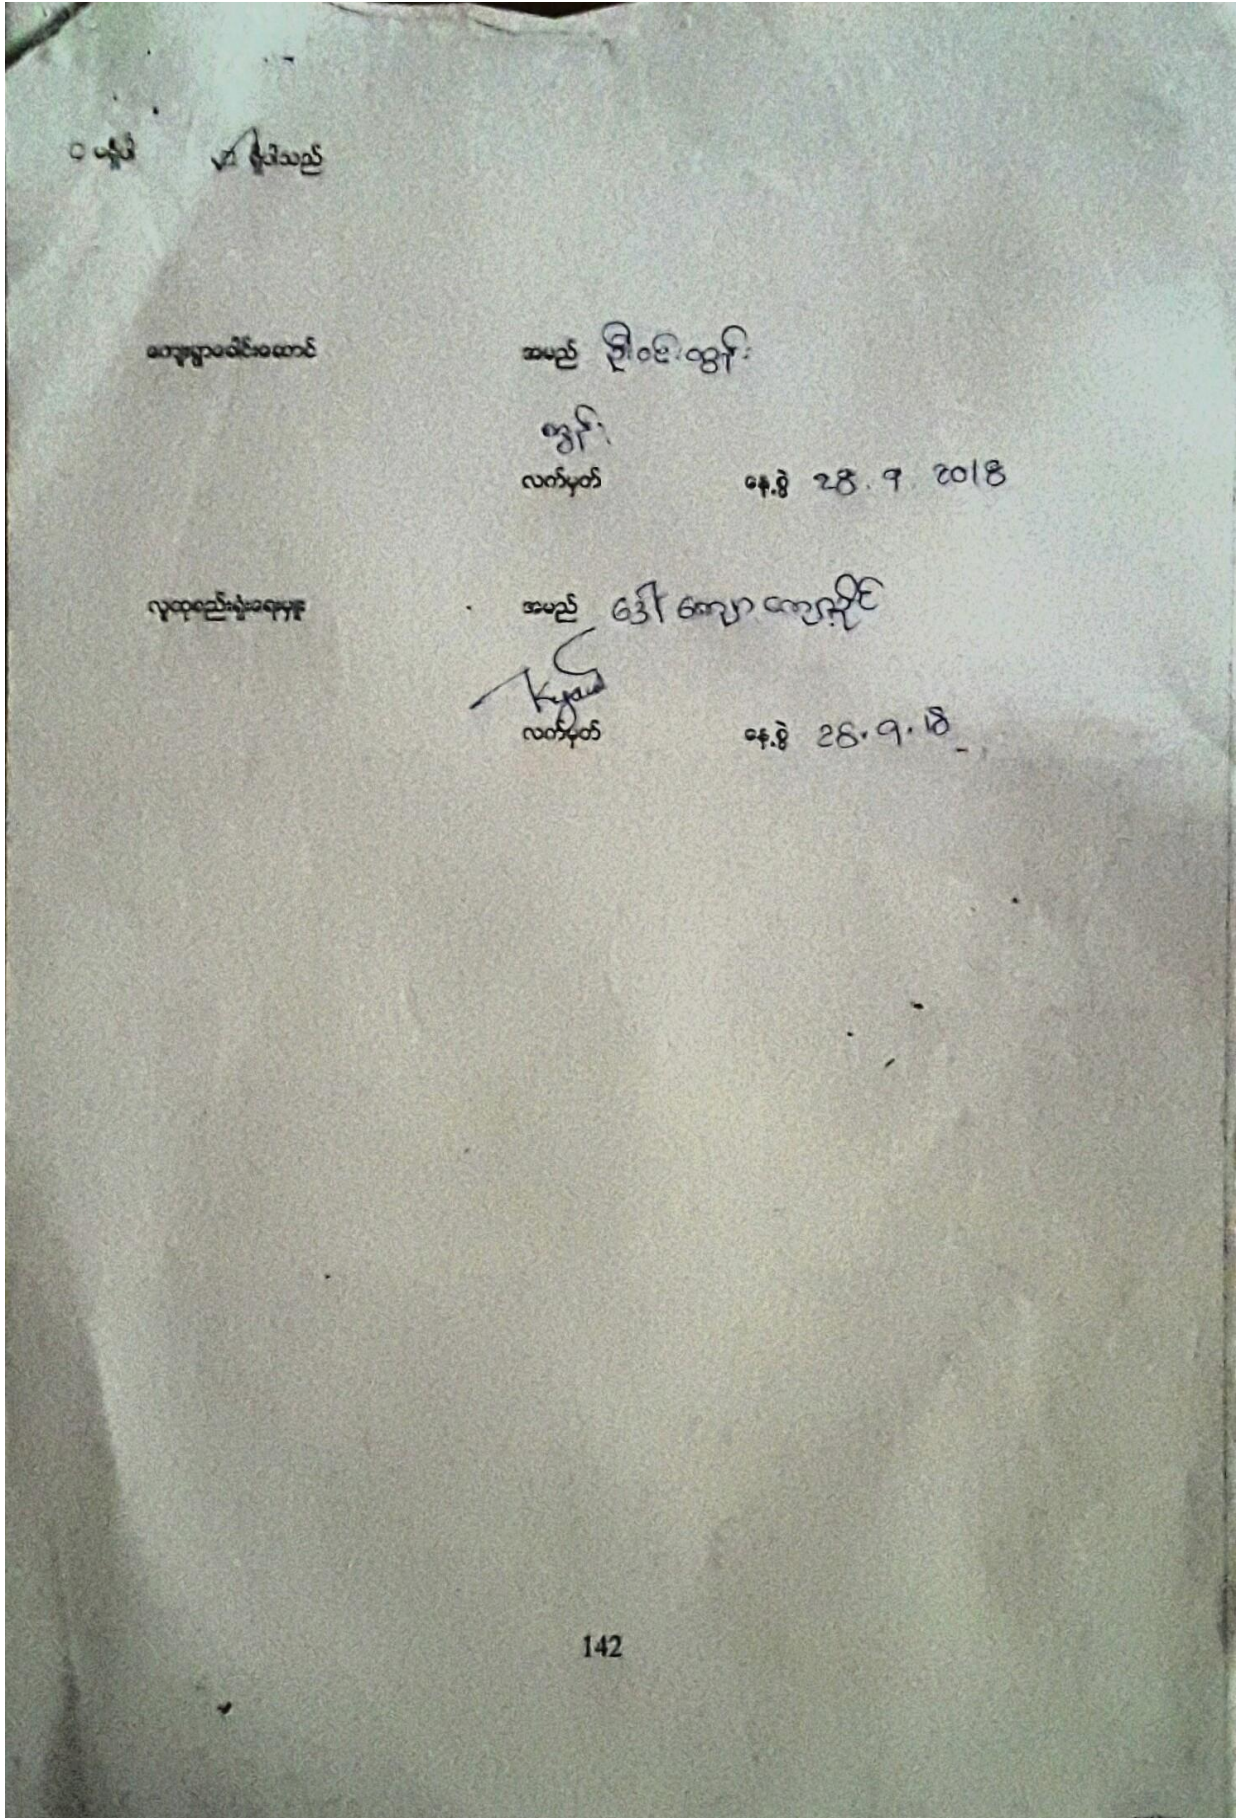 □ မရှိပါ ☑ ရှိပါသည်
ကျေးရွာခေါင်းဆောင် အမည် ဦးဝင်းထွန်း
ထွန်း
လက်မှတ် နေ့စွဲ 28.9.2018
လူထုစည်းရုံးရေးမှူး အမည် ဒေါ်ကျော့
Kyawt
လက်မှတ် နေ့စွဲ 28.9.18
142